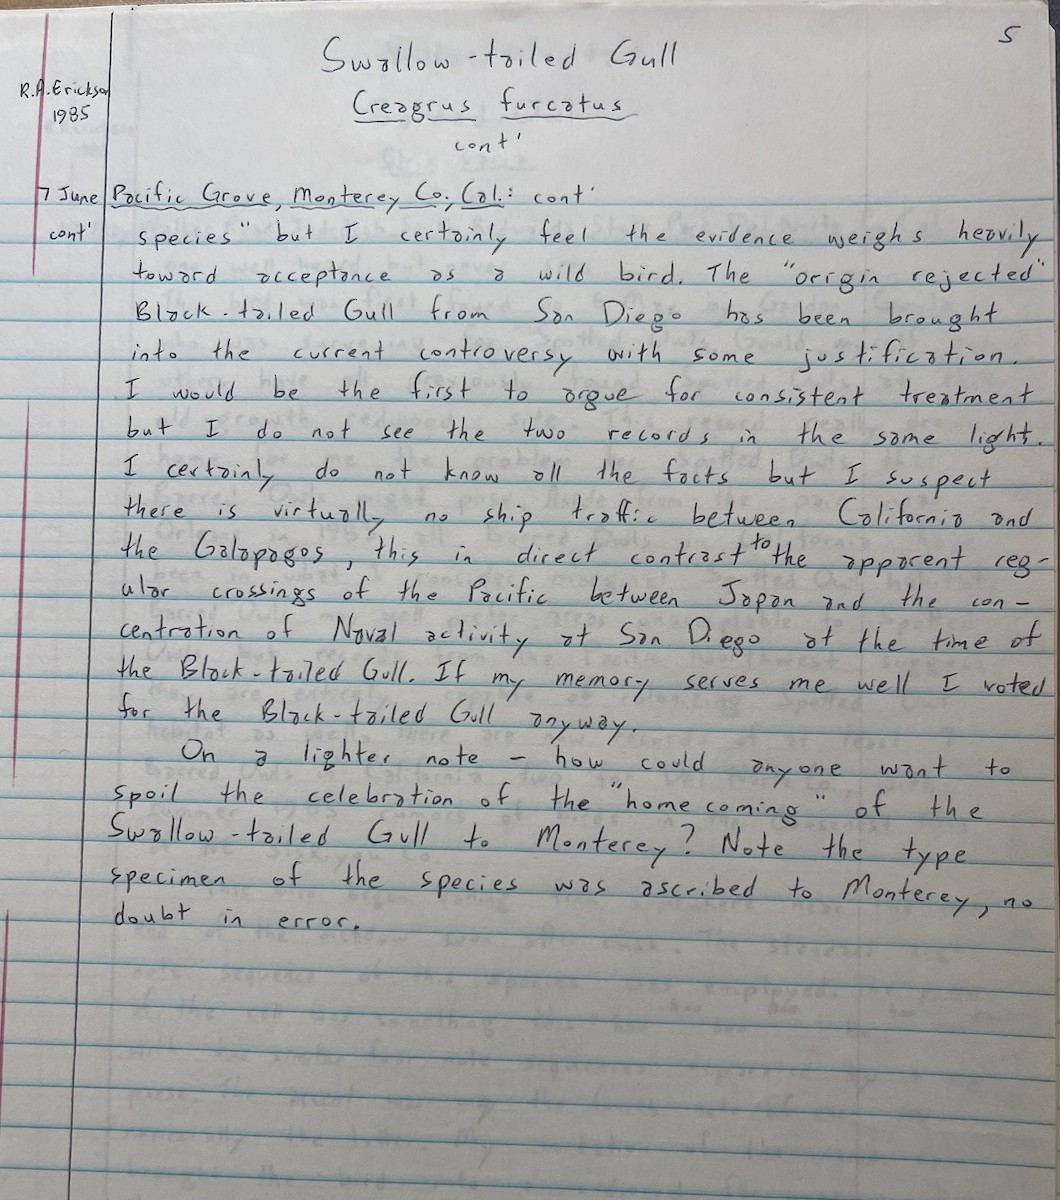 5
Swallow-tailed Gull
R.A.Erickson
1985
Creagrus furcatus
cont'
7 June Pacific Grove, Monterey Co., Cal.: cont'
cont' species" but I certainly feel the evidence weighs heavily
toward acceptance as a wild bird. The "origin rejected"
Black-tailed Gull from San Diego has been brought
into the current controversy with some justification.
I would be the first to argue for consistent treatment
but I do not see the two records in the same light.
I certainly do not know all the facts but I suspect
there is virtually no ship traffic between California and
the Galapagos, this in direct contrast to the apparent reg-
ular crossings of the Pacific between Japan and the con-
centration of Naval activity at San Diego at the time of
the Black-tailed Gull. If my memory serves me well I voted
for the Black-tailed Gull anyway.
On a lighter note - how could anyone want to
spoil the celebration of the "home coming" of the
Swallow-tailed Gull to Monterey? Note the type
specimen of the species was ascribed to Monterey, no
doubt in error.